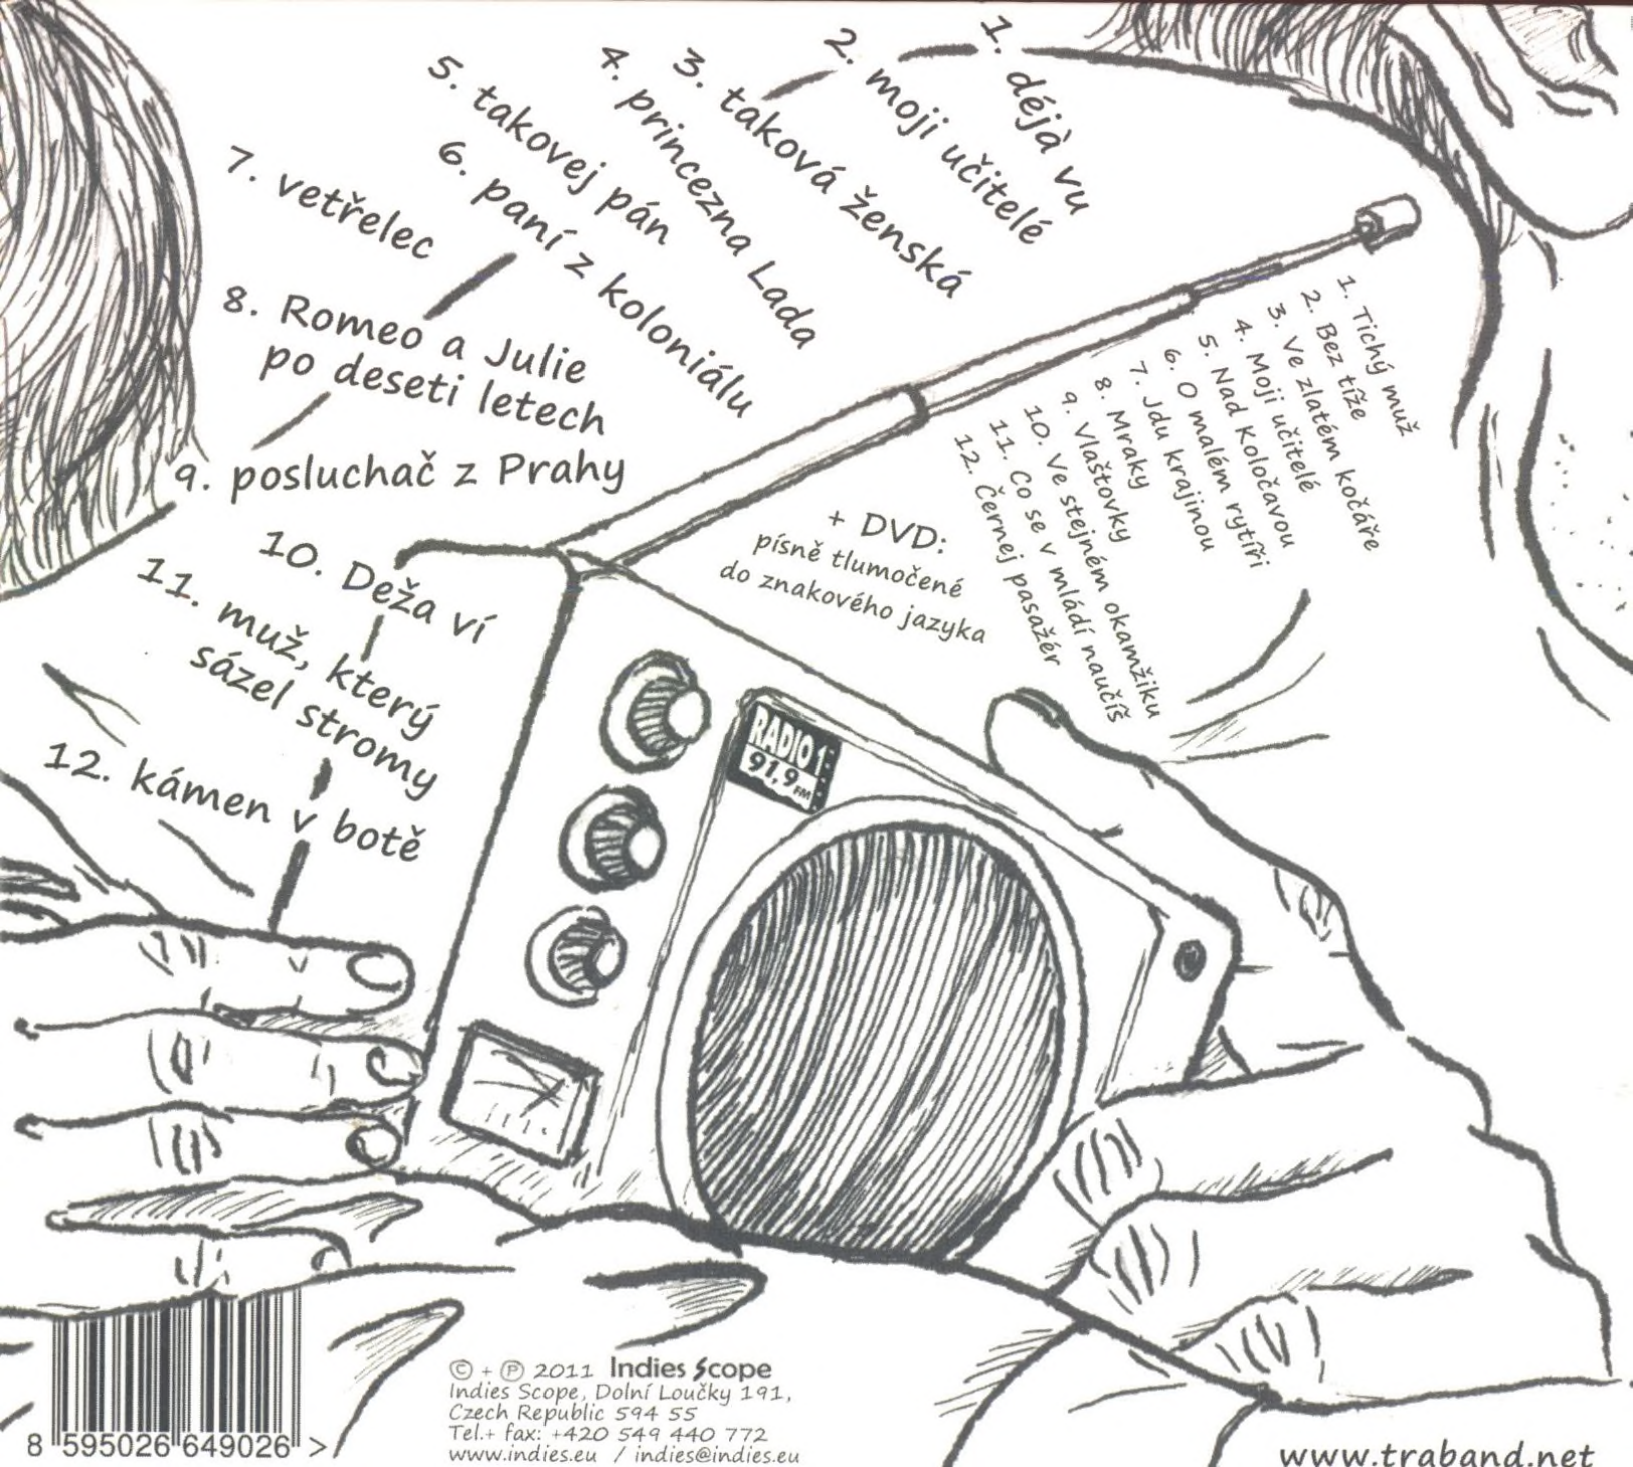 1. déjà vu
2. moji učitelé
3. taková ženská
4. princezna Lada
5. takovej pán
6. paní z koloniálu
7. vetřelec
8. Romeo a Julie
po deseti letech
9. posluchač z Prahy
10. Deža ví
11. muž, který
sázel stromy
12. kámen v botě
1. Tichý muž
2. Bez tíže
3. Ve zlatém kočáře
4. Moji učitelé
5. Nad Koločavou
6. O malém rytíři
7. Jdu krajinou
8. Mraky
9. Vlaštovky
10. Ve stejném okamžiku
11. Co se v mládí naučíš
12. Černej pasažér
+ DVD:
písně tlumočené
do znakového jazyka
RADIO 1
91,9 FM
© + ℗ 2011 Indies Scope
Indies Scope, Dolní Loučky 191,
Czech Republic 594 55
Tel.+ fax: +420 549 440 772
www.indies.eu / indies@indies.eu
8 595026 649026 >
www.traband.net